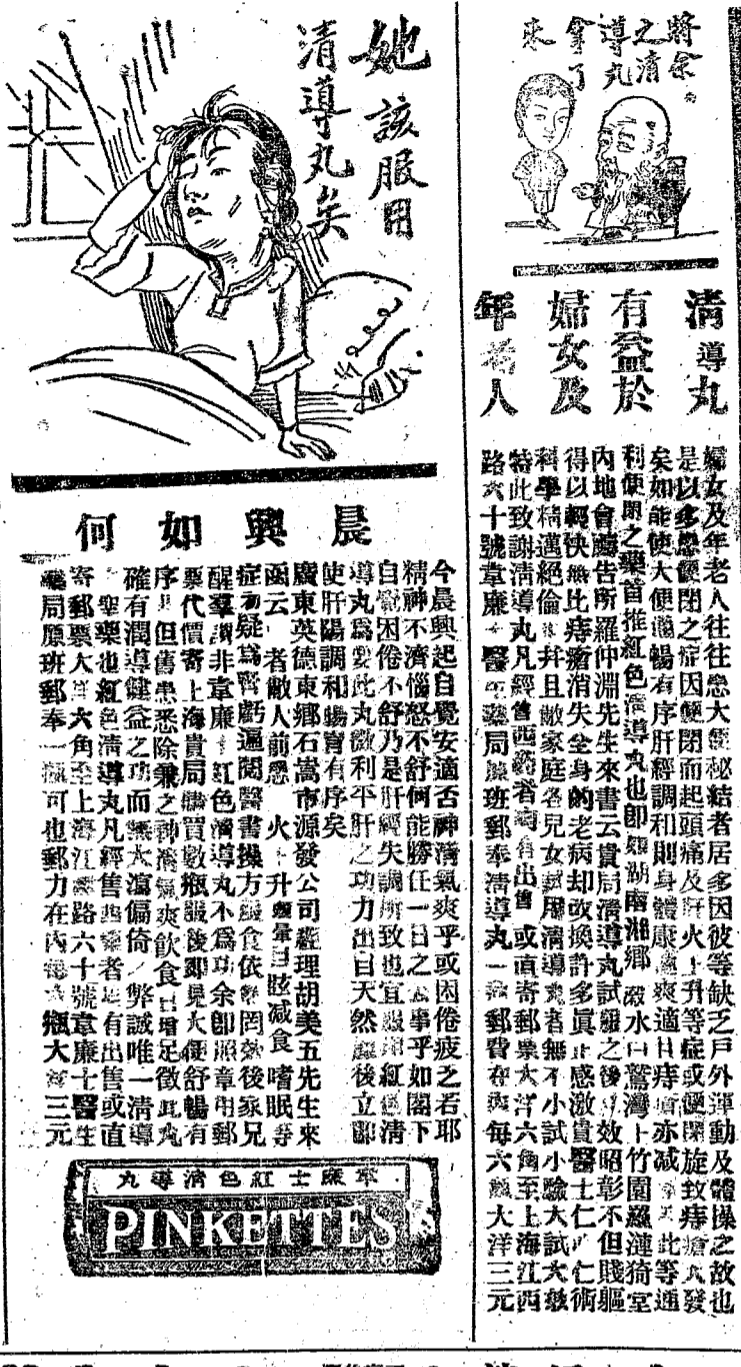 將余
之清
導丸
拿了
來
清導丸
有益於
婦女及
年老人
婦女及年老人往往患大便秘結者居多因彼等缺乏戶外運動及體操之故也
是以多患便閉之症因便閉而起頭痛及肝火上升等症或便閉旋致痔瘡大發
矣如能使大便通暢有序肝經調和則身體康健爽適且痔瘡亦減 此等通
利便閉之藥首推紅色清導丸也即如湖南湘鄉 水口鷲灣上竹園羅漣猗堂
內地會 告所羅仲淵先生來書云貴局清導丸試服之後 效昭彰不但賤軀
得以輕快無比痔瘡消失全身的老病却改換許多真正感激貴醫士仁心仁術
科學精邁絕倫 并且敝家庭各兒女試用清導丸者無不小試小驗大試大驗
特此致謝清導丸凡經售西藥者均有出售或直寄郵票大洋六角至上海江西
路六十號韋廉士醫生藥局原班郵奉清導丸一瓶郵費在內每六瓶大洋三元
她該服用
清導丸矣
晨興如何
今晨興起自覺安適否神清氣爽乎或困倦疲乏若耶
精神不濟惱怒不舒何能勝任一日之 事乎如閣下
自覺困倦不舒乃是肝經失調所致也宜服用紅色清
導丸為要此丸微利平肝之功力出自天然服後立即
使肝陽調和暢有序矣
廣東英德東鄉石嵩市源發公司經理胡美五先生來
函云 者敝人前患 火上升頭暈目眩減食嗜眠等
症初疑為腎虧遍閱醫書操方服食依然罔效後家兄
醒羣謂非韋廉士紅色清導丸不為功余即照章用郵
票代價寄上海貴局購買數瓶服後即見大便舒暢有
序 但舊患悉除兼之神清氣爽飲食日增足徵此丸
確有潤導健益之功而無太瀉偏倚之弊誠唯一清導
聖藥也紅色清導丸凡經售西藥者均有出售或直
寄郵票大洋六角至上海江西路六十號韋廉士醫生
藥局原班郵奉一瓶可也郵力在內每六瓶大洋三元
韋廉士紅色清導丸
PINKETTES